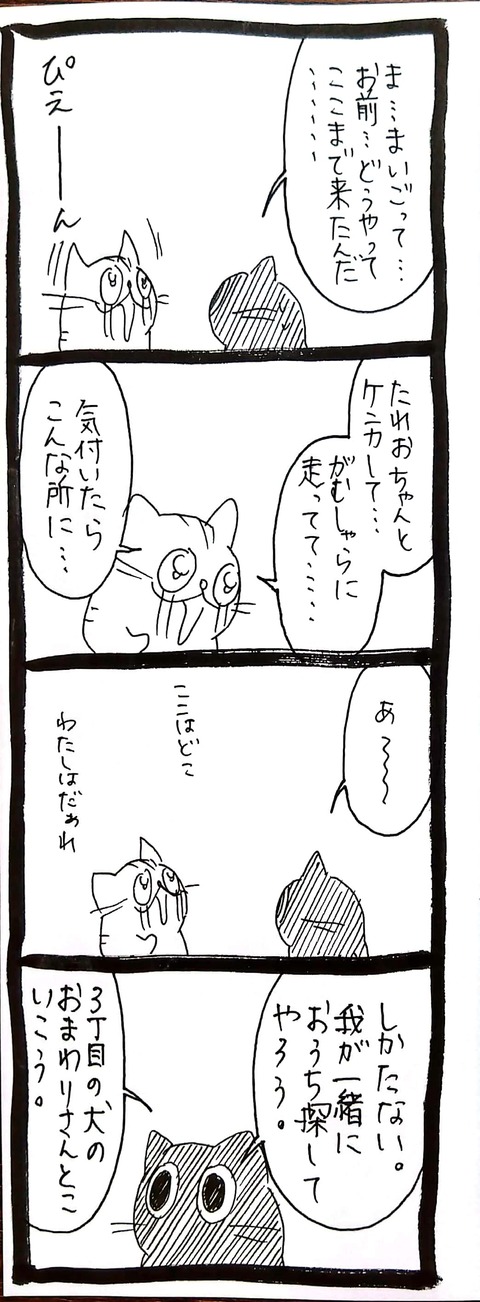 ま…まいごって…
お前…どうやって
ここまで来たんだ
………
ぴえーーん
たれおちゃんと
ケンカして…
がむしゃらに
走ってて……
気付いたら
こんな所に…
あ〜〜〜
ここはどこ
わたしはだぁれ
しかたない。
我が一緒に
おうち探して
やろう。
3丁目の犬の
おまわりさんとこ
いこう。